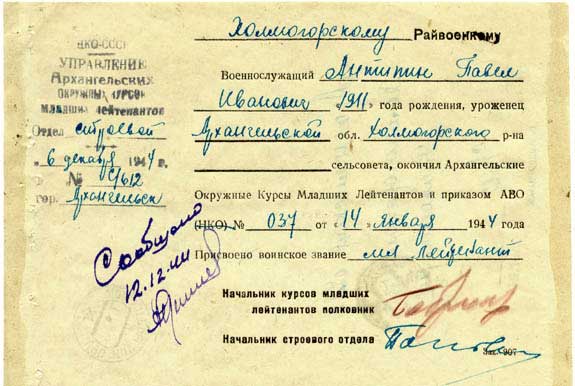 НКО-СССР
УПРАВЛЕНИЕ
Архангельских
ОКРУЖНЫХ КУРСОВ
МЛАДШИХ ЛЕЙТЕНАНТОВ
Отдел строевой
„6 декабря 1944 г.
№ С/612
гор. Архангельск
Сообщено
12.12.44
Холмогорскому Райвоенкому
Военнослужащий Антипин Павел
Иванович „1911“ года рождения, уроженец
Архангельской обл. Холмогорского р-на
сельсовета, окончил Архангельские
Окружные Курсы Младших Лейтенантов и приказом АВО
(НКО) № 037 от „14“ января 1944 года
Присвоено воинское звание мл лейтенант
Начальник курсов младших
лейтенантов полковник
Начальник строевого отдела
Зак. 907